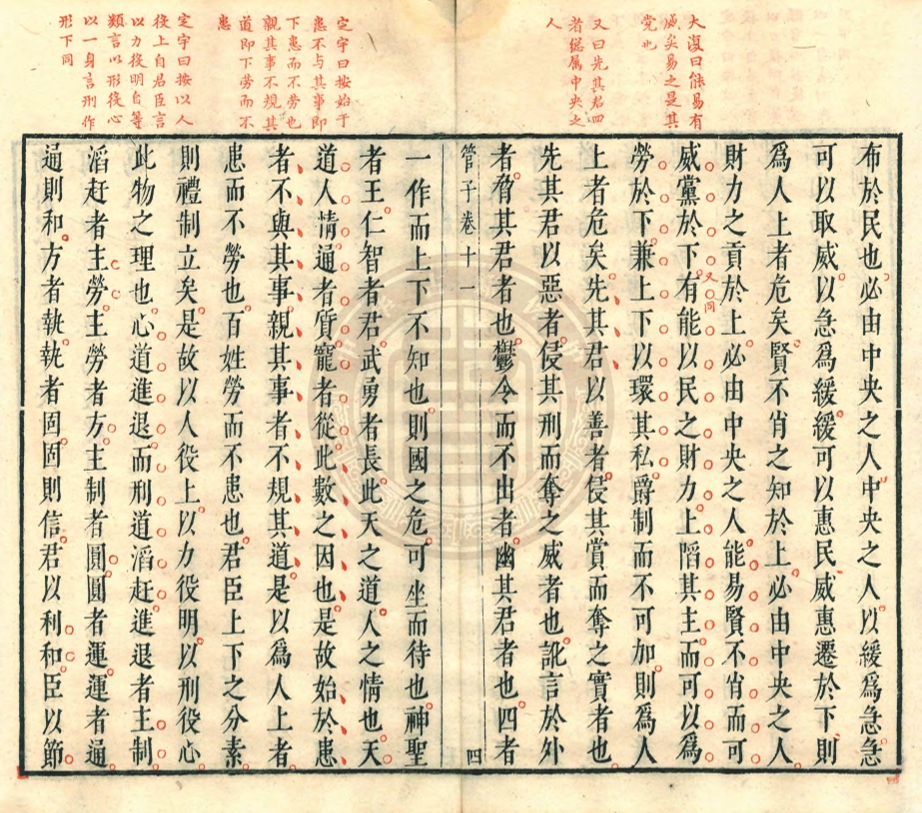 大復曰能易有
威矣易之是其
党也
又曰先其君四
者總屬中央之
人
布於民也必由中央之人中央之人以緩爲急急
可以取威以急爲緩緩可以惠民威惠遷於下則
爲人上者危矣賢不肖之知於上必由中央之人
財力之貢於上必由中央之人能易賢不肖而可
威黨於下有能以民之財力上陷其主而可以爲
又同
勞於下兼上下以環其私爵制而不可加則爲人
上者危矣先其君以善者侵其賞而奪之實者也
先其君以惡者侵其刑而奪之威者也訛言於外
者脅其君者也鬱令而不出者幽其君者也四者
管子卷十一
四
定宇曰按始于
患不与其事即
下患而不勞也
親其事不規其
道即下劳而不
患
定宇曰按以人
役上自君臣言
以力役明自等
類言以形役心
以一身言刑作
形下同
一作而上下不知也則國之危可坐而待也神聖
者王仁智者君武勇者長此天之道人之情也天
道人情通者質寵者從此數之因也是故始於患
者不與其事親其事者不規其道是以爲人上者
患而不勞也百姓勞而不患也君臣上下之分素
則禮制立矣是故以人役上以力役明以刑役心
此物之理也心道進退而刑道滔赶進退者主制
滔赶者主勞主勞者方主制者圓圓者運運者通
通則和方者執執者固固則信君以利和臣以節